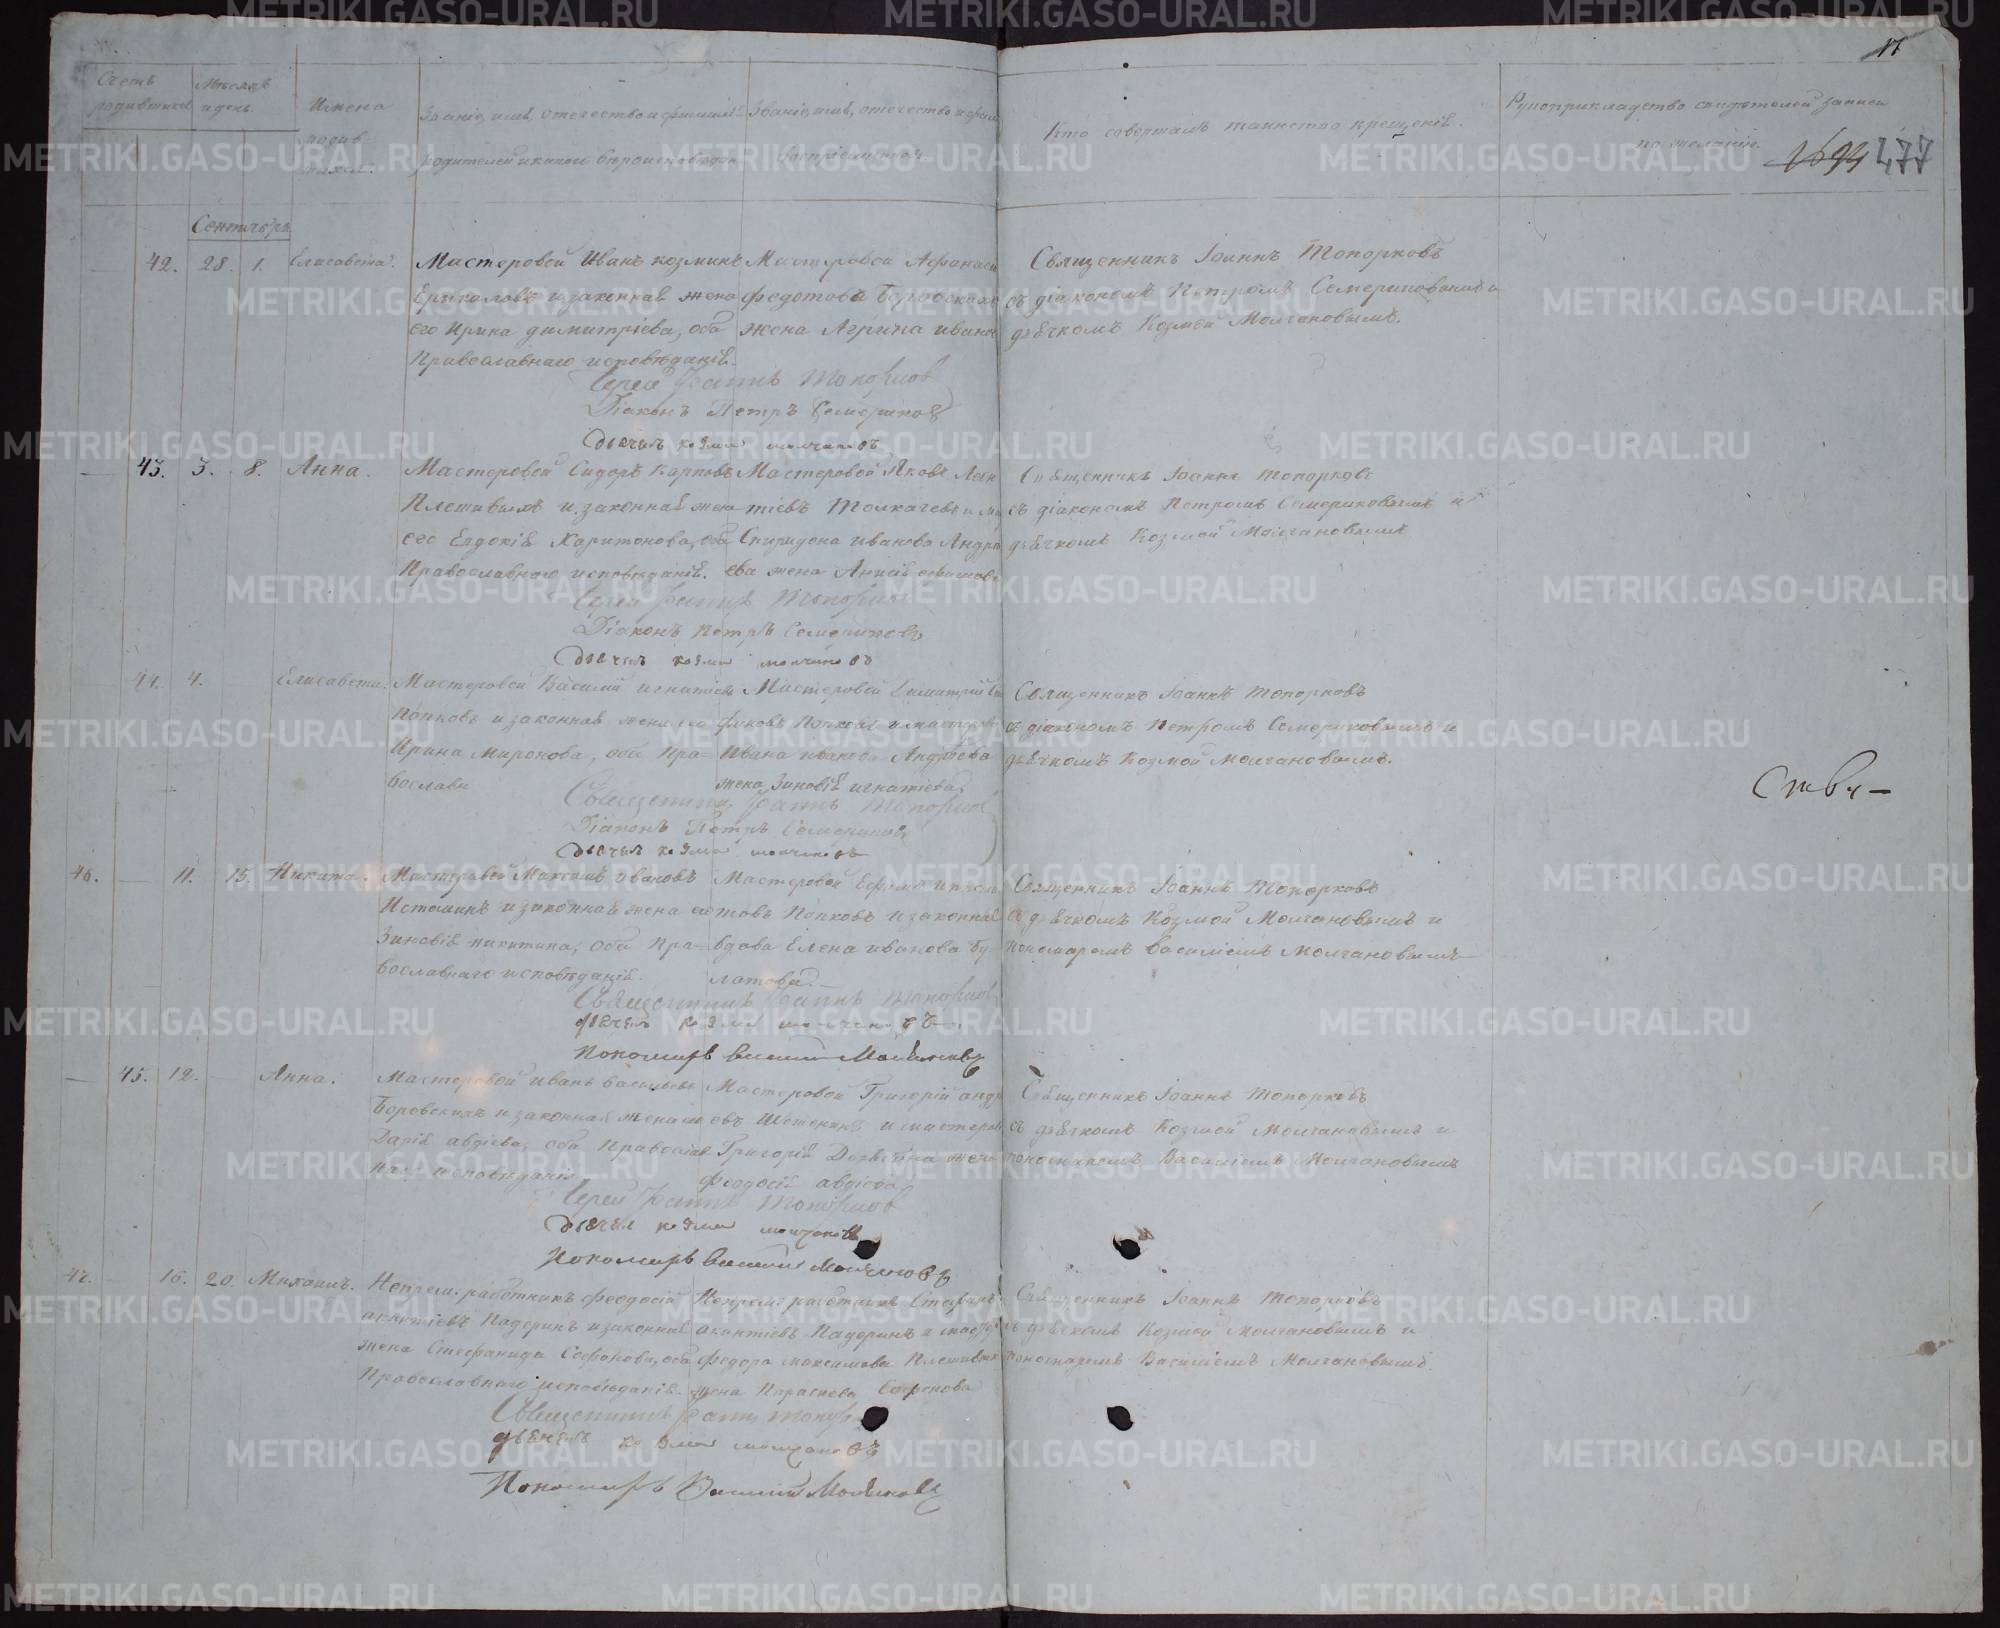 17
Счетъ родившихся
Мѣсяцъ и день
Имена родившихся.
Званіе, имя, отечество и фамилія родителей и какого вѣроисповѣданія
Званіе, имя, отечество и фамилія воспріемниковъ
Кто совершалъ таинство крещенія.
Рукоприкладство свидѣтелей записи по желанію.
477
Сентябрь
42. 28. 1. Елисавета.
Мастеровой Иванъ Козминъ
и законная жена
его Ирина Димитріева, оба
Православнаго исповѣданія.
Мастеровой Афанасій
Федотовъ Боровскихъ
жена Агрипа Иванова
Священникъ Іоаннъ Топорковъ
съ діакономъ Петромъ Семериковымъ и
дьячкомъ Козмой Молчановымъ.
Іерей Іоаннъ Топорковъ
Діаконъ Петръ Семериковъ
Дьячекъ Козма Молчановъ
43. 3. 8. Анна.
Мастеровой Сидоръ Карповъ
Плетивыхъ и законная жена
его Евдокія Харитонова, оба
Православнаго исповѣданія.
Мастеровой Яковъ Леон
тіевъ Толкачевъ и ма
Спиридона Иванова Андре
ева жена Анисія
Священникъ Іоаннъ Топорковъ
съ діакономъ Петромъ Семериковымъ и
дьячкомъ Козмой Молчановымъ
Іерей Іоаннъ Топорковъ
Діаконъ Петръ Семериковъ
Дьячекъ Козма Молчановъ
44. 4. Елисавета.
Мастеровой Василій Игнатіевъ
Попковъ и законная жена его
Ирина Миронова, оба Пра-
вославн
Мастеровой Димитрій
Попковъ и мастеров
Ивана Иванова Андреева
жена Зиновія Игнатіева
Священникъ Іоаннъ Топорковъ
съ діакономъ Петромъ Семериковымъ и
дьячкомъ Козмой Молчановымъ.
Священникъ Іоаннъ Топорковъ
Діаконъ Петръ Семериковъ
Дьячекъ Козма Молчановъ
46. 11. 15. Никита.
Мастеровой Максимъ Ивановъ
Истоминъ и законная жена его
Зиновія Никитина, оба Пра-
вославнаго исповѣданія.
Мастеровой Ефимъ Иппол
товъ Попковъ и законная
вдова Елена Иванова Бу-
латова.
Священникъ Іоаннъ Топорковъ
съ дьячкомъ Козмой Молчановымъ и
пономаремъ Василіемъ Молчановымъ
Священникъ Іоаннъ Топорковъ
Дьячекъ Козма Молчановъ
Пономарь Василій Молчановъ
45. 12. Анна.
Мастеровой Иванъ Васильевъ
Боровскихъ и законная жена его
Дарія Авдіева, оба Православ
наго исповѣданія.
Мастеровой Григорій Андре
евъ Щеткинъ и мастеров
Григорій жена
Феодосія Авдіева
Священникъ Іоаннъ Топорковъ
съ дьячкомъ Козмой Молчановымъ и
пономаремъ Василіемъ Молчановымъ
Іерей Іоаннъ Топорковъ
Дьячекъ Козма Молчановъ
Пономарь Василій Молчановъ
47. 16. 20. Михаилъ.
Непрем. работникъ Феодосій
Падеринъ и законная
жена Стефанида Софонова, оба
Православнаго исповѣданія.
Непрем. работникъ Стефанъ
Падеринъ и мастер
Федора Максимова Плетивых
жена Параскева Софонова
Священникъ Іоаннъ Топорковъ
съ дьячкомъ Козмой Молчановымъ и
пономаремъ Василіемъ Молчановымъ.
Священникъ Іоаннъ Топорковъ
Дьячекъ Козма Молчановъ
Пономарь Василій Молчановъ
METRIKI.GASO-URAL.RU